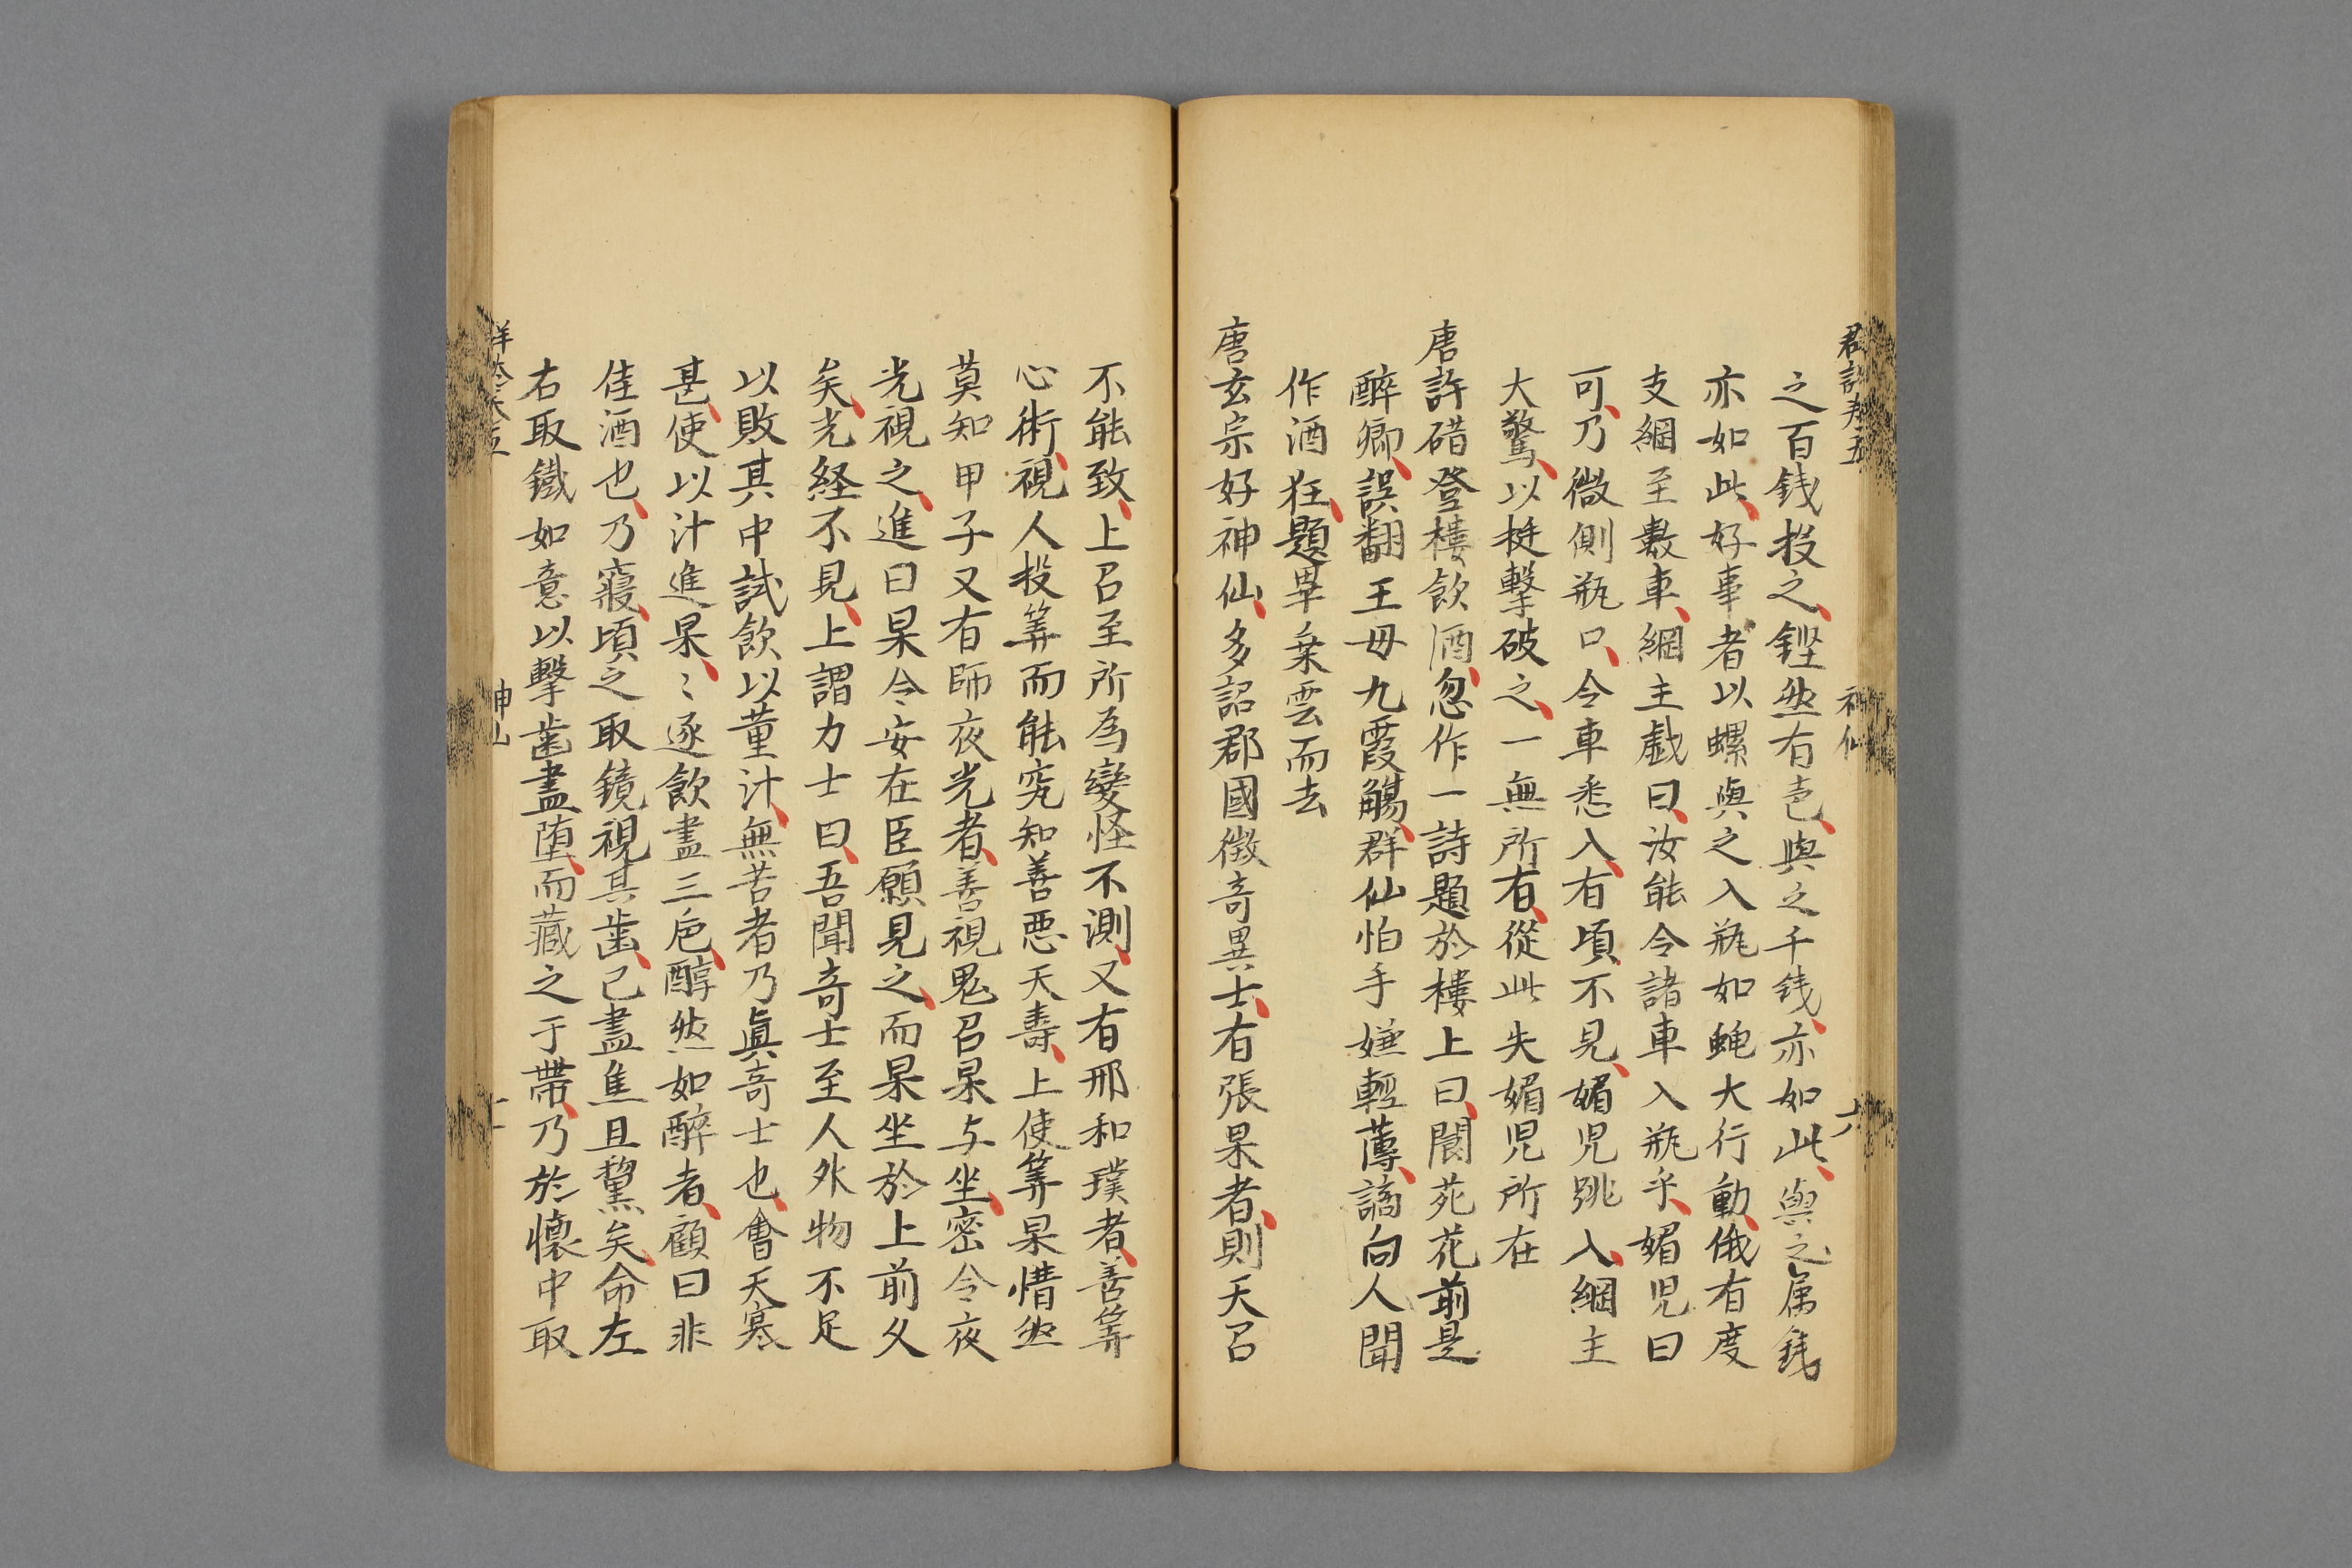 之百銭投之鏗然有声與之千銭亦如此與之属銭
亦如此好事者以螺與之入瓶如蝿大行動俄有度
支綱至数車綱主戯曰汝能令諸車入瓶乎媚児曰
可乃微側瓶口令車悉入有頃不見媚児跳入綱主
大驚以挺撃破之一無所有從此失媚児所在
唐許碏登樓飲酒忽作一詩題於樓上曰閬苑花前是
醉卿誤翻王母九霞觴群仙怕手嫌輕薄謫向人間
作酒狂題畢乗雲而去
唐玄宗好神仙多詔郡國徴奇異士有張果者則天召
不能致上召至所為變怪不測又有邢和璞者善筭
心術視人投筭而能究知善悪夭壽上使筭果惜然
莫知甲子又有師夜光者善視鬼召果与坐密令夜
光視之進曰果今安在臣願見之而果坐於上前久
矣光経不見上謂力士曰吾聞奇士至人外物不足
以敗其中試飲以菫汁無苦者乃真奇士也會天寒
甚使以汁進果〻逐飲盡三巵醇然如醉者顧曰非
佳酒也乃寢頃之取鏡視其歯已盡焦且黧矣命左
右取鐵如意以撃歯盡堕而藏之于帶乃於懐中取